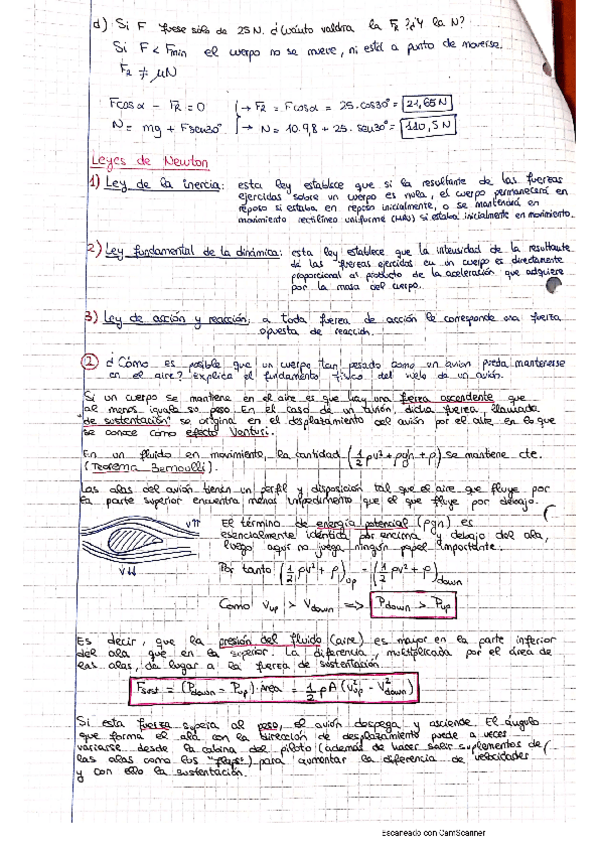 d) Si F fuese sólo de 25 N. ¿Cuánto valdría la FR? ¿Y la N?
Si F < Fmin el cuerpo no se mueve, ni está a punto de moverse.
FR ≠ μN
Fcosα - FR = 0 → FR = Fcosα = 25·cos30° = 21,65 N
N = mg + Fsen30° → N = 10·9,8 + 25·sen30° = 110,5 N
Leyes de Newton
1) Ley de la inercia: esta ley establece que si la resultante de las fuerzas
ejercidas sobre un cuerpo es nula, el cuerpo permanecerá en
reposo si estaba en reposo inicialmente, o se mantendrá en
movimiento rectilíneo uniforme (MRU) si estaba inicialmente en movimiento.
2) Ley fundamental de la dinámica: esta ley establece que la intensidad de la resultante
de las fuerzas ejercidas en un cuerpo es directamente
proporcional al producto de la aceleración que adquiere
por la masa del cuerpo.
3) Ley de acción y reacción: a toda fuerza de acción le corresponde una fuerza
opuesta de reacción.
2 ¿Cómo es posible que un cuerpo tan pesado como un avión pueda mantenerse
en el aire? Explica el fundamento físico del vuelo de un avión.
Si un cuerpo se mantiene en el aire es que hay una fuerza ascendente que
al menos iguala su peso. En el caso de un avión, dicha fuerza, llamada
"de sustentación" se origina en el desplazamiento del avión por el aire en lo que
se conoce como efecto Venturi.
En un fluido en movimiento, la cantidad (1/2 ρv² + ρgh + p) se mantiene cte.
(Teorema Bernoulli).
Las alas del avión tienen un perfil y disposición tal que el aire que fluye por
la parte superior encuentra menos impedimento que el que fluye por debajo.
v↑↑
v↓↓
El término de energía potencial (ρgh) es
esencialmente idéntica por encima y debajo del ala,
luego aquí no juega ningún papel importante.
Por tanto (1/2 ρv² + p)up = (1/2 ρv² + p)down
Como Vup > Vdown => Pdown > Pup
Es decir, que la presión del fluido (aire) es mayor en la parte inferior
del ala que en la superior. La diferencia, multiplicada por el área de
las alas, da lugar a la fuerza de sustentación.
Fsust = (Pdown - Pup)·área = 1/2 ρA (V²up - V²down)
Si esta fuerza supera al peso, el avión despega y asciende. El ángulo
que forma el ala con la dirección de desplazamiento puede a veces
variarse desde la cabina del piloto (además de hacer salir suplementos de
las alas como los "flaps") para aumentar la diferencia de velocidades
y con ello la sustentación.
Escaneado con CamScanner